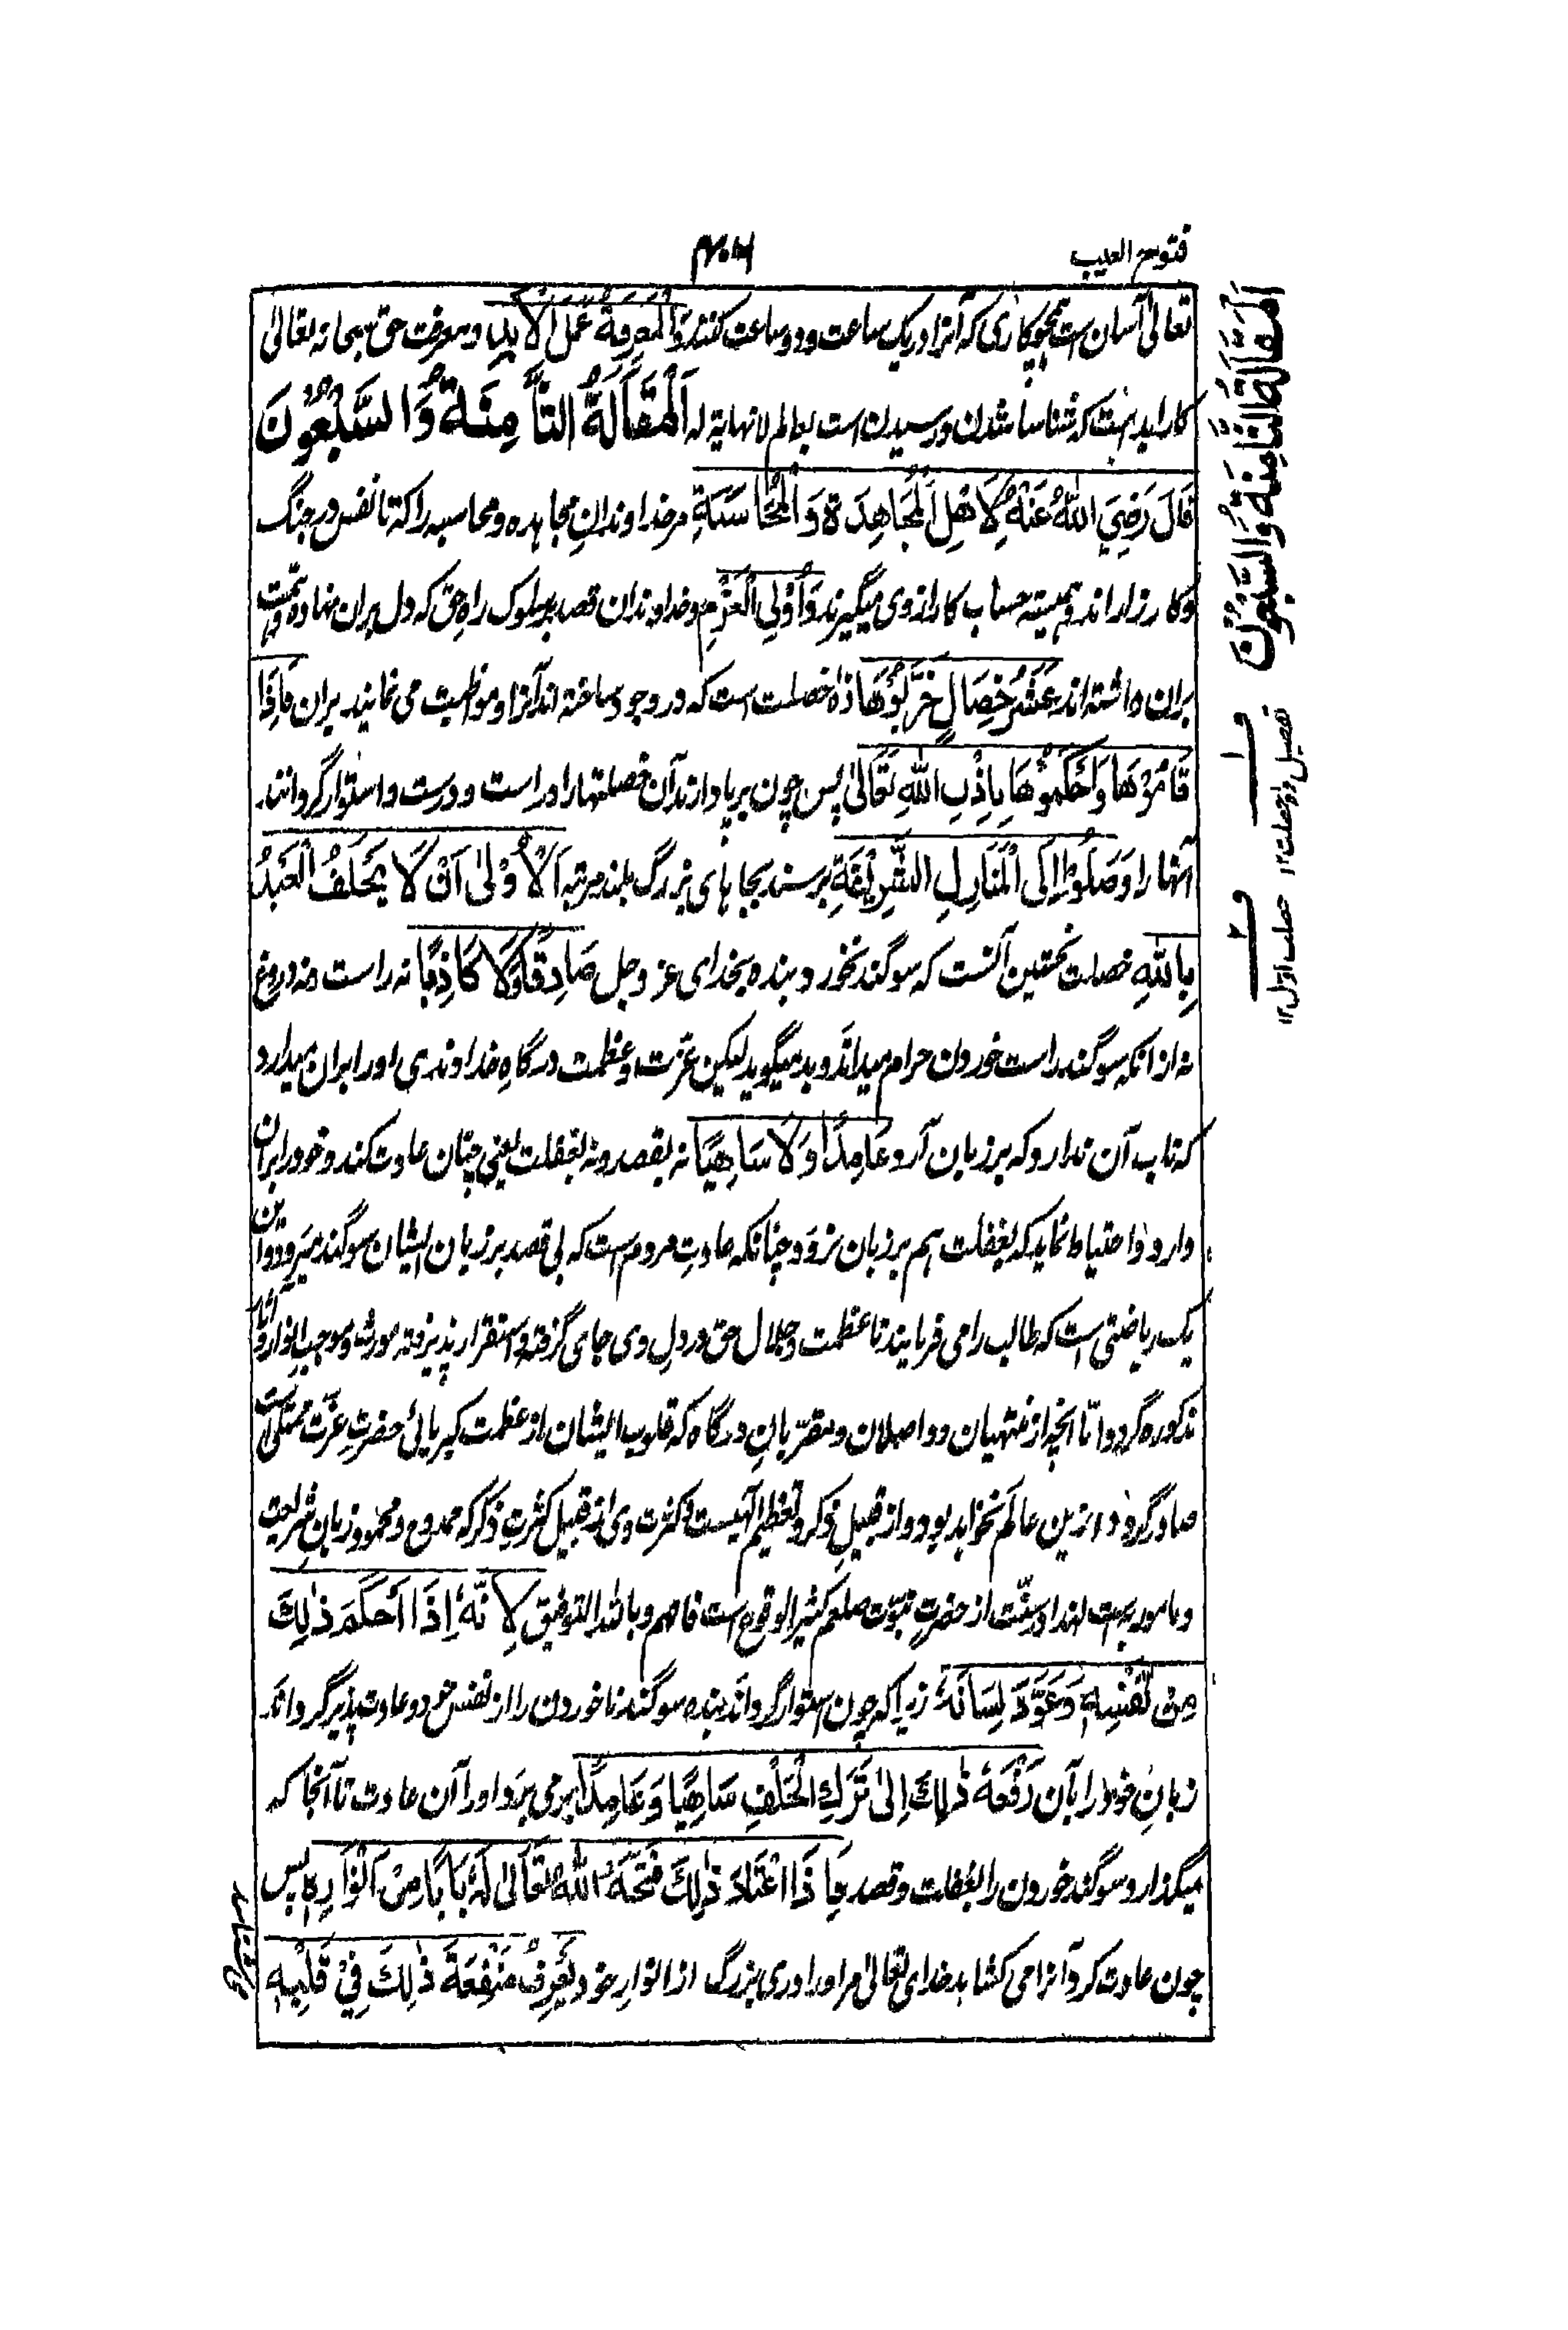 فتوح الغیب
۴۰۱
تعالیٰ آسان ست همچو کاری که آنرا در یک ساعت و دو ساعت کنند وَالْمَعْرِفَةُ عَمَلُ الْاَبَدِ و معرفت حق سبحانه تعالیٰ
کار ابد است که شناسا شدن و رسیدن است بعالم لانهایة له اَلْمَقَالَةُ الثَّامِنَةُ وَالسَّبْعُوْنَ
قَالَ رَضِيَ اللّٰهُ عَنْهُ لِاَهْلِ الْمُجَاهِدَةِ وَالْمُحَاسَبَةِ مرخداوندان مجاهده و محاسبه را که تا نفس در جنگ
و کارزار اند و همیشه حساب کار از وی میگیرند وَاُولِي الْعَزْمِ و خداوندان قصد بر سلوک راهِ حق که دل بران نهاده و همت
بران داشته اند عَشْرُ خِصَالٍ جَرَّبُوْهَا ده خصلت است که در وجود ساخته اند آنرا و مواظبت می نمایند بران فَاِذَا
قَامُوْهَا وَاَحْكَمُوْهَا بِاِذْنِ اللّٰهِ تَعَالٰى پس چون برپا دارند آن خصلتها را و راست و درست و استوار گردانند
آنها را وَصَلُوْا اِلَى الْمَنَازِلِ الشَّرِيْفَةِ برسند بجاهای بزرگ بلند مرتبه اَلْاُوْلٰى اَنْ لَا يَحْلِفَ الْعَبْدُ
بِاللّٰهِ خصلت نخستین آنست که سوگند نخورد بنده بخدای عز و جل صَادِقًا وَلَا كَاذِبًا نه راست و نه دروغ
نه از انکه سوگند راست خوردن حرام میداند و بد میگوید لیکن عزت و عظمت درگاهِ خداوندی او را بران میدارد
که تاب آن ندارد که بر زبان آرد عَامِدًا وَلَا سَاهِيًا نه بقصد و نه بغفلت یعنی چنان عادت کند و خود را بران
دارد و احتیاط نماید که بغفلت هم بر زبان نرود چنانکه عادتِ مردم ست که بی قصد بر زبان ایشان سوگند میرود و این
یک ریاضتی است که طالب را می فرمایند تا عظمت و جلال حق در دلِ وی جای گرفته و استقرار پذیرفته مورث و موجب انوار و آثار
مذکوره گردد و امّا آنچه از منتهیان و واصلان و مقرّبانِ درگاه که قلوب ایشان از عظمت کبریائی حضرتِ عزّت ممتلی است
صادر گردد ازین عالم نخواهد بود و از قبیلِ ذکر و تعظیم الٰهیست و کثرت وی از قبیل کثرتِ ذکر که ممدوح و محمود زبانِ شریعت
و مامور به است لهذا در سنّت از حضرتِ نبوّت صلعم کثیر الوقوع است فافهم و بالله التوفیق لِاَنَّهٗ اِذَا اَحْكَمَ ذٰلِكَ
مِنْ نَفْسِهٖ وَعَوَّدَ لِسَانَهٗ زیراکه چون استوار گرداند بنده سوگند ناخوردن را از نفس خود و عادت پذیر گرداند
زبانِ خود را بآن دَفَعَهٗ ذٰلِكَ اِلٰى تَرْكِ الْحَلْفِ سَاهِيًا وَعَامِدًا برمی برد او را آن عادت تا آنجا که
میگذارد سوگند خوردن را بغفلت و قصد فَاِذَا اعْتَادَ ذٰلِكَ فَتَحَ اللّٰهُ تَعَالٰى لَهٗ بَابًا مِنْ اَنْوَارِهٖ پس
چون عادت کرد آنرا می کشاید خدای تعالیٰ مر او را دری بزرگ از انوارِ خود يَعْرِفُ مَنْفَعَةَ ذٰلِكَ فِيْ قَلْبِهٖ
اَلْمَقَالَةُ الثَّامِنَةُ وَالسَّبْعُوْنَ
ف ۱
تفصیل ده خصلت ۱۲
ف ۲
خصلت اول ۱۲